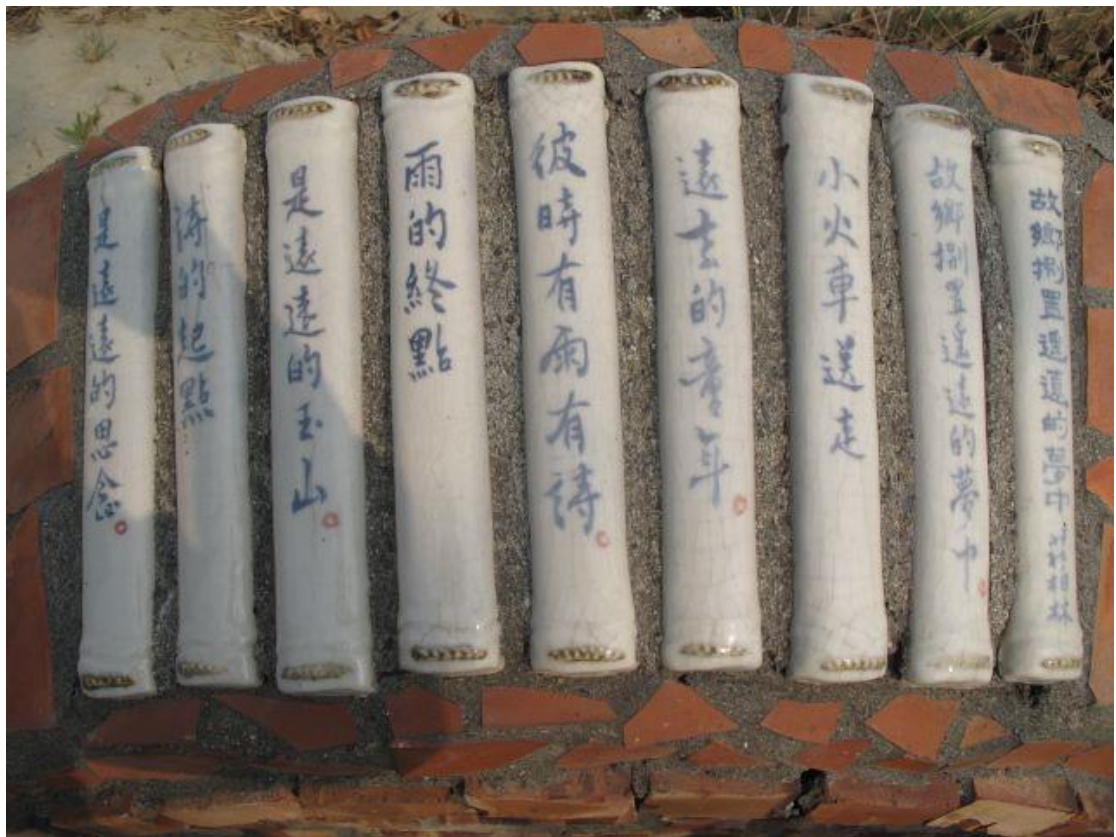 故鄉捌置遙遠的夢中
故鄉捌置遙遠的夢中
小火車送走
遠去的童年
彼時有雨有詩
雨的終點
是遠遠的玉山
詩的起點
是遠遠的思念